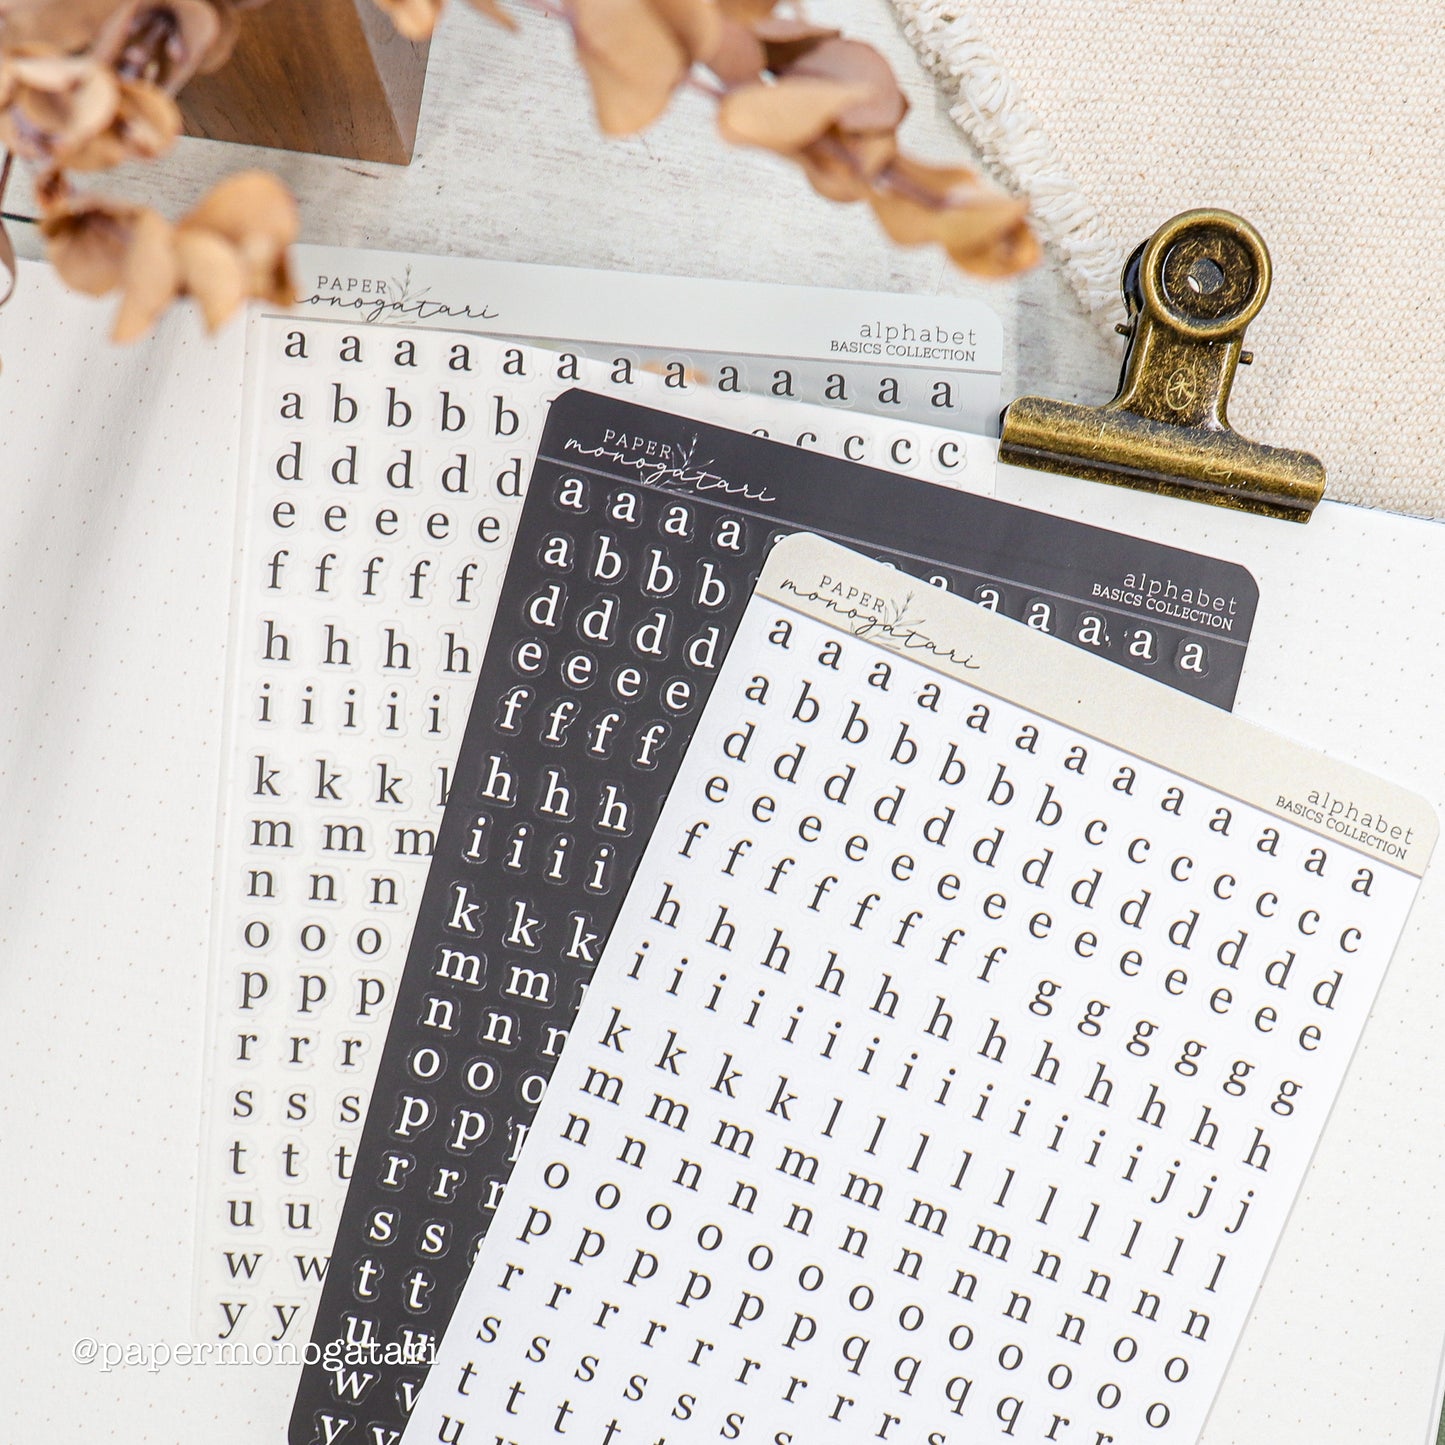 PAPER
monogatari
alphabet
BASICS COLLECTION
a a a a a a a a a a a a a
a b b b b c c c c
d d d d d
e e e e e
f f f f f
h h h h
i i i i i
k k k
m m m
n n n
o o o
p p p
r r r
s s s
t t t
u u
w w
y y
PAPER
monogatari
alphabet
BASICS COLLECTION
a a a a a a a a a a
a b b b
d d d d
e e e e
f f f f
h h h
i i i i
k k k
m m
n n n
o o o
p p
r r r
s s
t t
u u
w
y y
PAPER
monogatari
alphabet
BASICS COLLECTION
a a a a a a a a a a a a a
a b b b b b b c c c c c c c
d d d d d d d d d d d d d
e e e e e e e e e e e e e e
f f f f f f f f g g g g g g
h h h h h h h h h h h h
i i i i i i i i i i i i i i j j j
k k k k l l l l l l l l l l
m m m m m m m n n n n
n n n n n n n n n n o o
o o o o o o o o o o o o o
p p p p p p q q q q r r
r r r r r r r r r s
s s s s s s s
t t t t
u
@papermonogatari